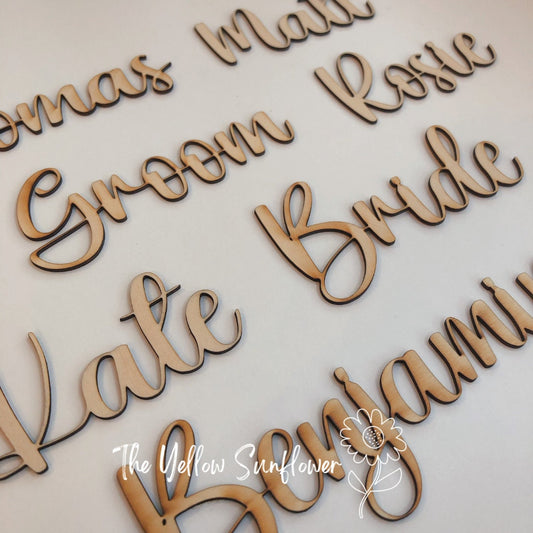 Matt
omas
Rosie
Groom
Bride
Kate
Benjami
The Yellow Sunflower